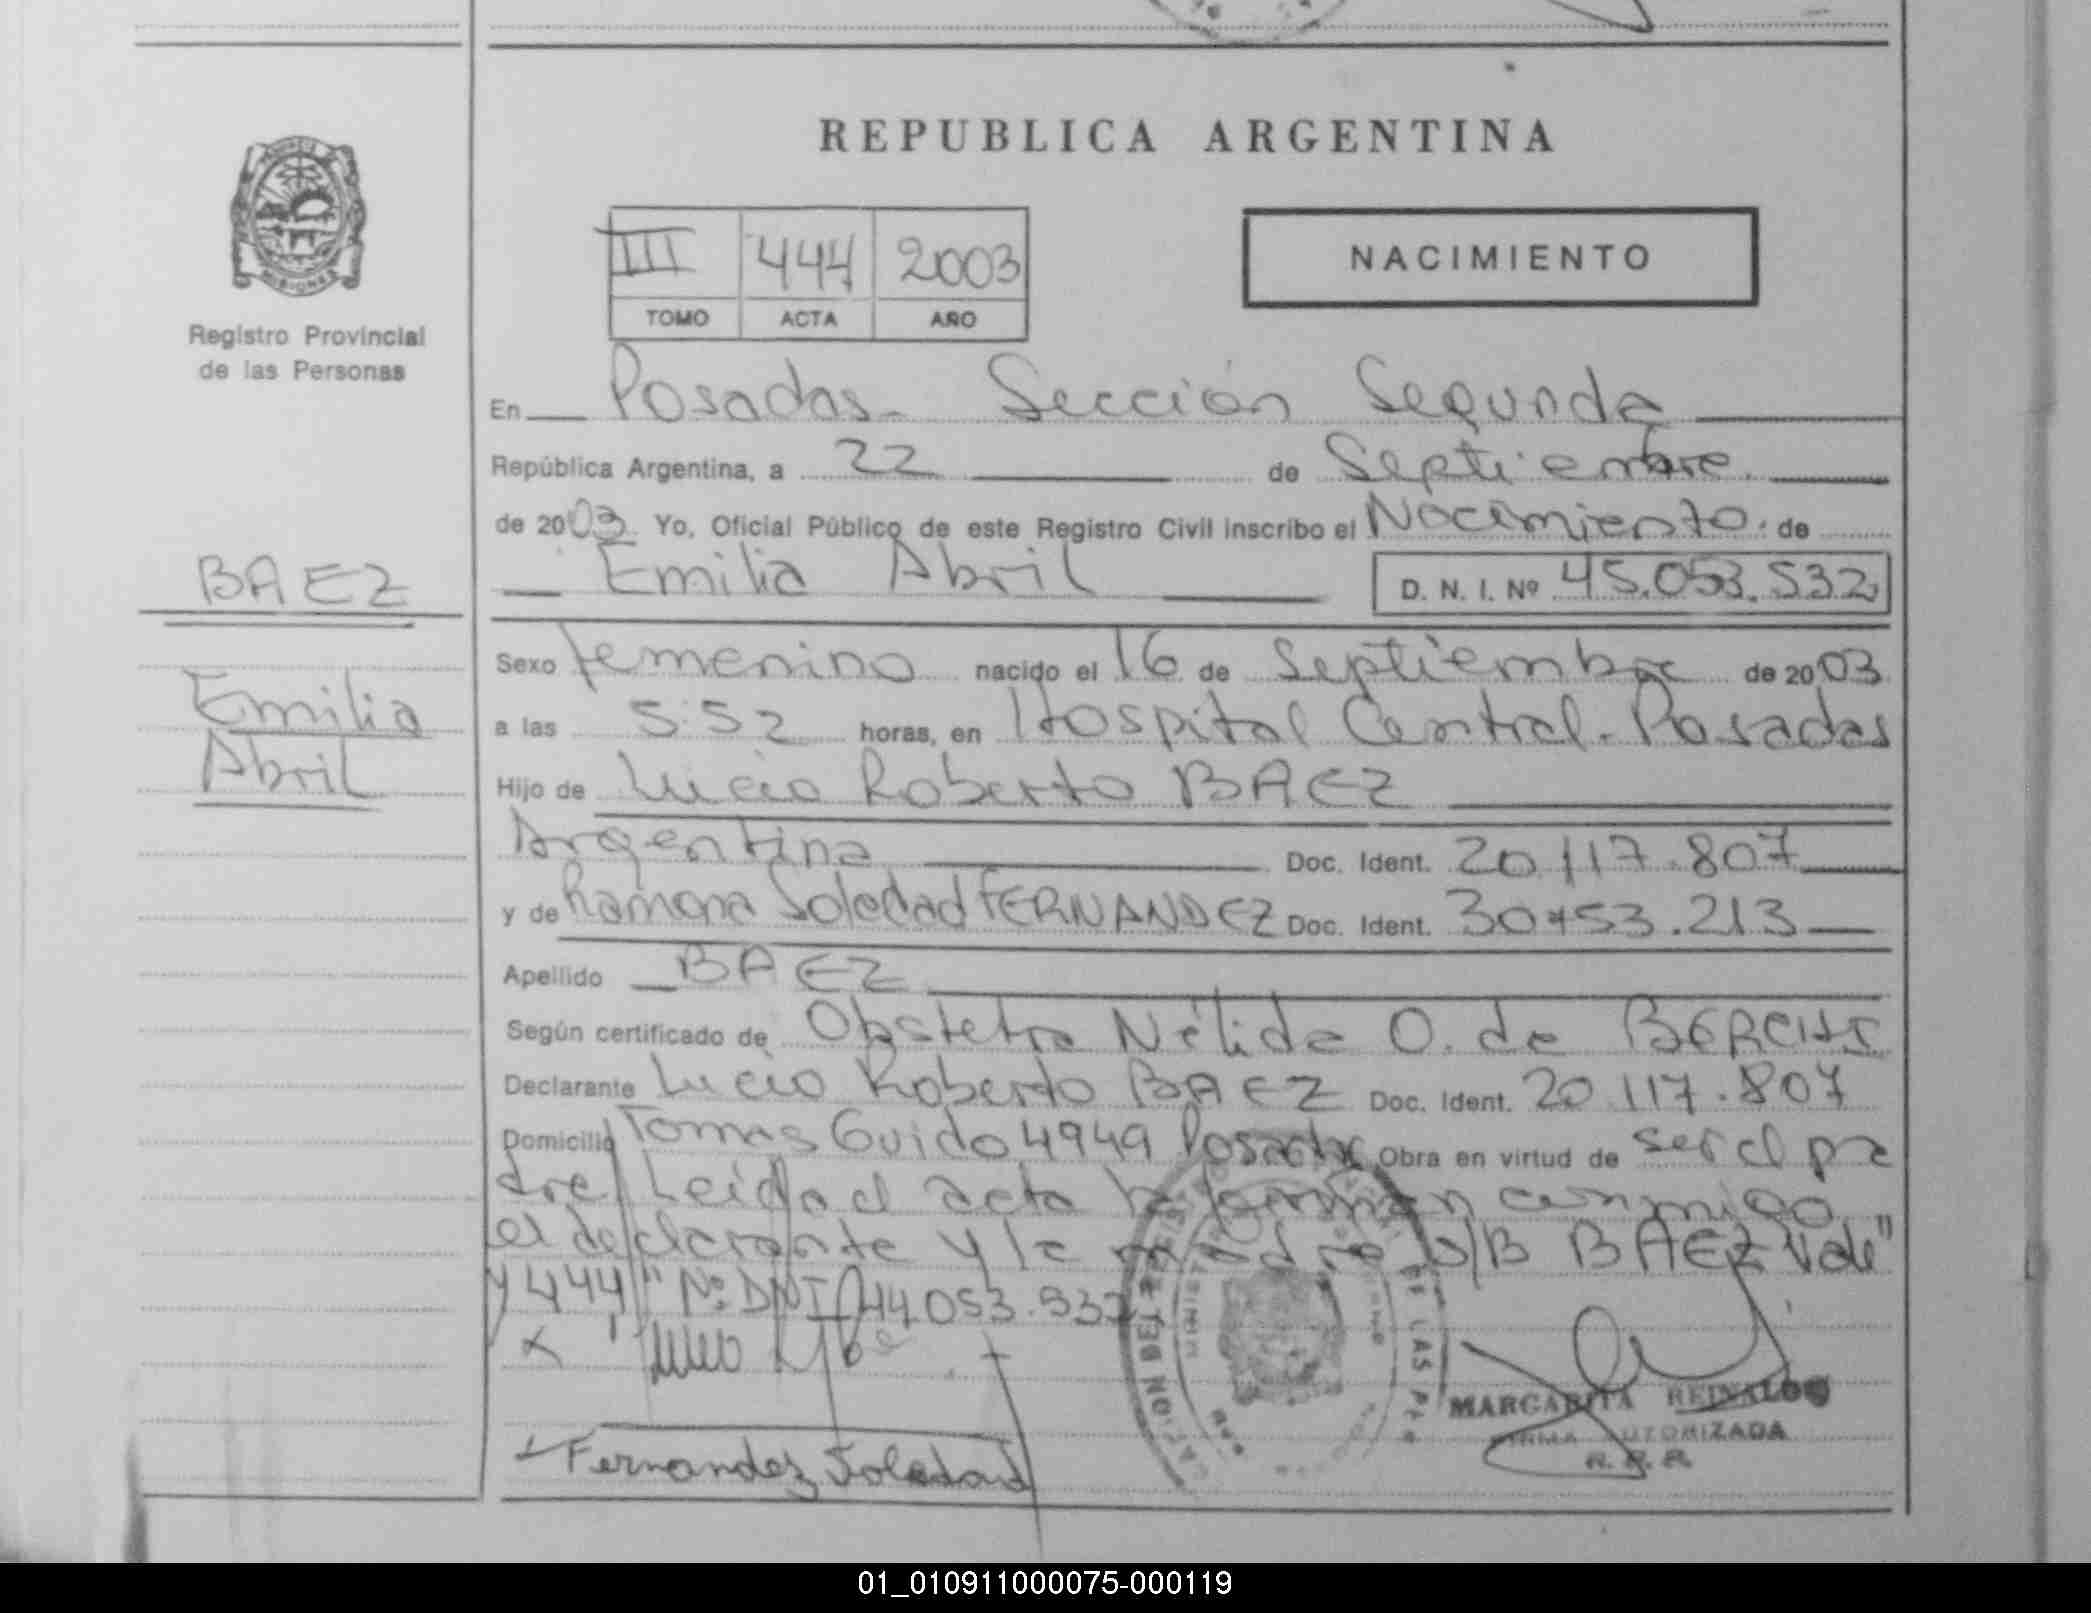 REPUBLICA ARGENTINA
III 444 2003
TOMO ACTA AÑO
NACIMIENTO
Registro Provincial
de las Personas
En Posadas - Sección Segunda
República Argentina, a 22 de Septiembre
de 2003 Yo, Oficial Público de este Registro Civil inscribo el Nacimiento de
Emilia Abril D. N. I. Nº 45.053.532
BAEZ
Emilia
Abril
Sexo femenino nacido el 16 de Septiembre de 2003
a las 5:52 horas, en Hospital Central - Posadas
Hijo de Lucio Roberto BAEZ
Argentina Doc. Ident. 20.117.807
y de Ramona Soledad FERNANDEZ Doc. Ident. 30.453.213
Apellido BAEZ
Según certificado de Obstetra Nélida O. de
Declarante Lucio Roberto BAEZ Doc. Ident. 20.117.807
Domicilio Tomas Guido 4949 Posadas Obra en virtud de ser el pa
dre Leida el acta la firman conmigo
el declarante y la madre S/B BAEZ Vale"
y 444 " Nº DNI 44.053.532
MARGARITA REINALDO
FIRMA AUTORIZADA
Fernandez Soledad
01_010911000075-000119